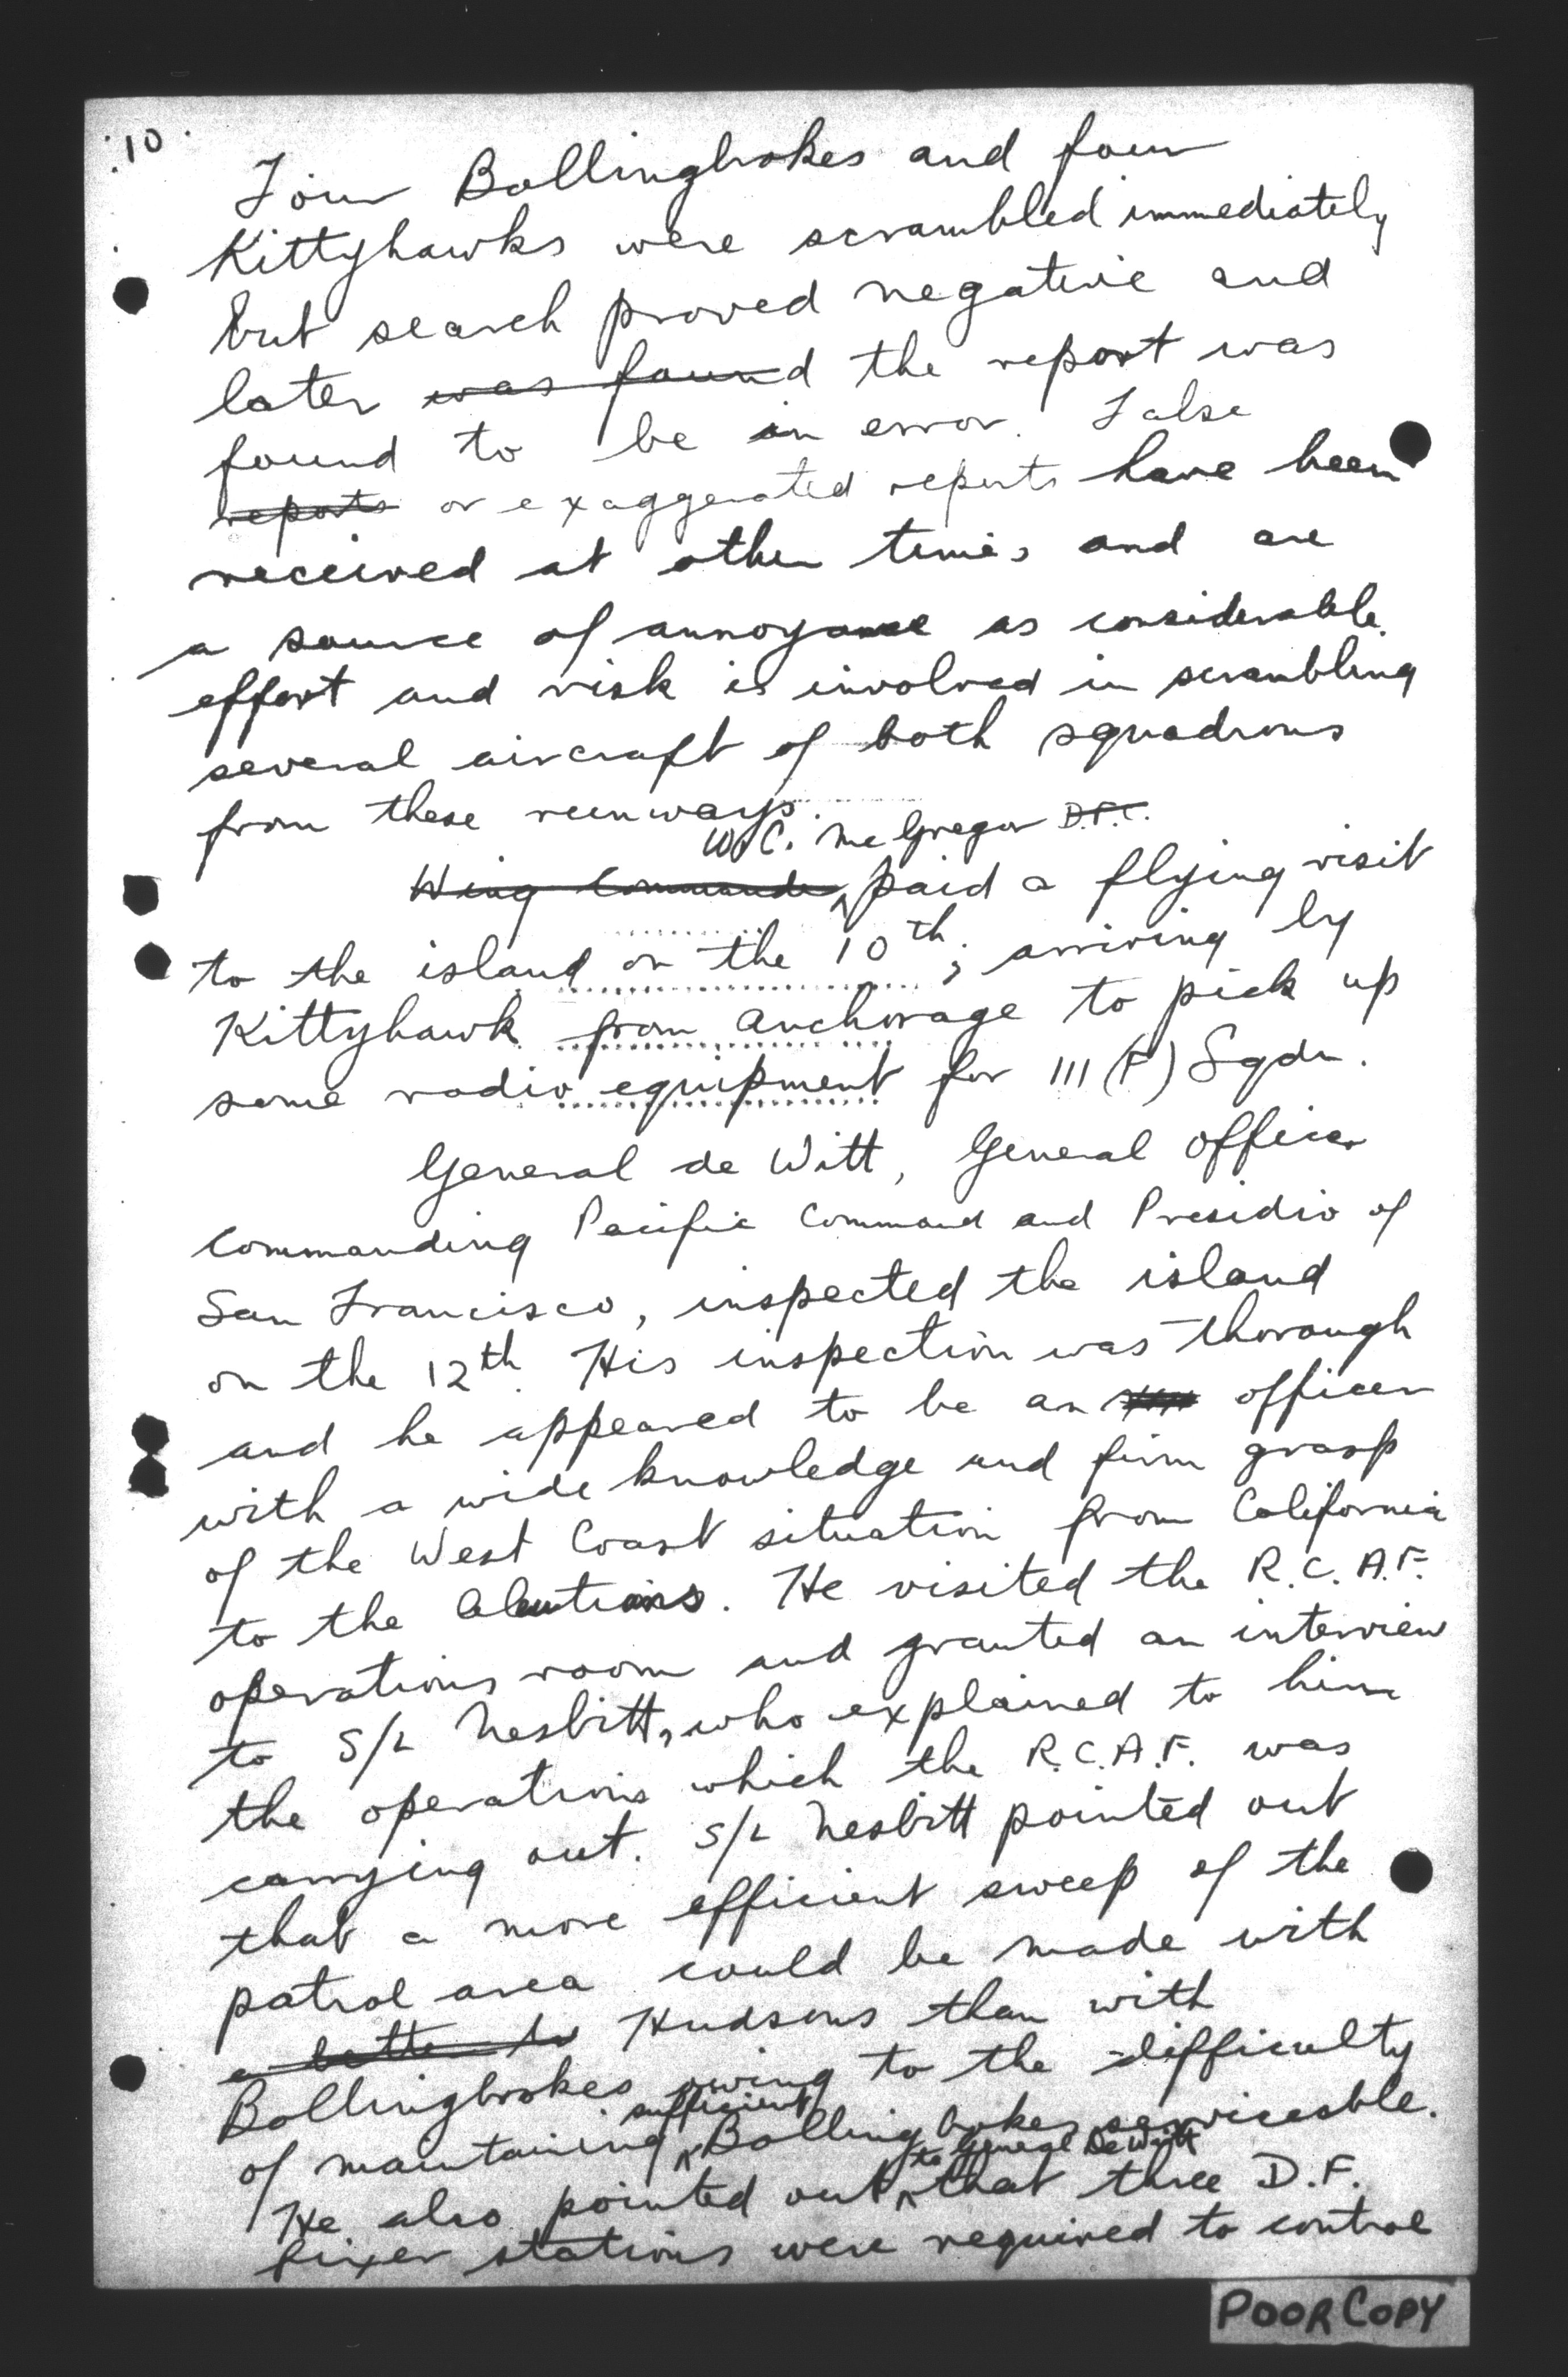 10
Four Bollingbrokes and four
Kittyhawks were scrambled immediately
but search proved negative and
later was found the report was
found to be in error. False
reports or exaggerated reports have been
received at other times and are
a source of annoyance as considerable
effort and risk is involved in scrambling
several aircraft of both squadrons
from these runways.
W.C. McGregor D.F.C.
Wing Commander paid a flying visit
to the island on the 10th, arriving by
Kittyhawk from Anchorage to pick up
some radio equipment for 111 (F) Sqdn.
General de Witt, General Officer
Commanding Pacific Command and Presidio of
San Francisco, inspected the island
on the 12th. His inspection was thorough
and he appeared to be an officer
with a wide knowledge and firm grasp
of the West Coast situation from California
to the Aleutians. He visited the R.C.A.F.
operations room and granted an interview
to S/L Nesbitt, who explained to him
the operations which the R.C.A.F. was
carrying out. S/L Nesbitt pointed out
that a more efficient sweep of the
patrol area could be made with
a better Hudsons than with
Bollingbrokes owing to the difficulty
sufficient
of maintaining Bollingbrokes serviceable.
to General DeWitt
He also pointed out that three D.F.
fixer stations were required to control
POOR COPY